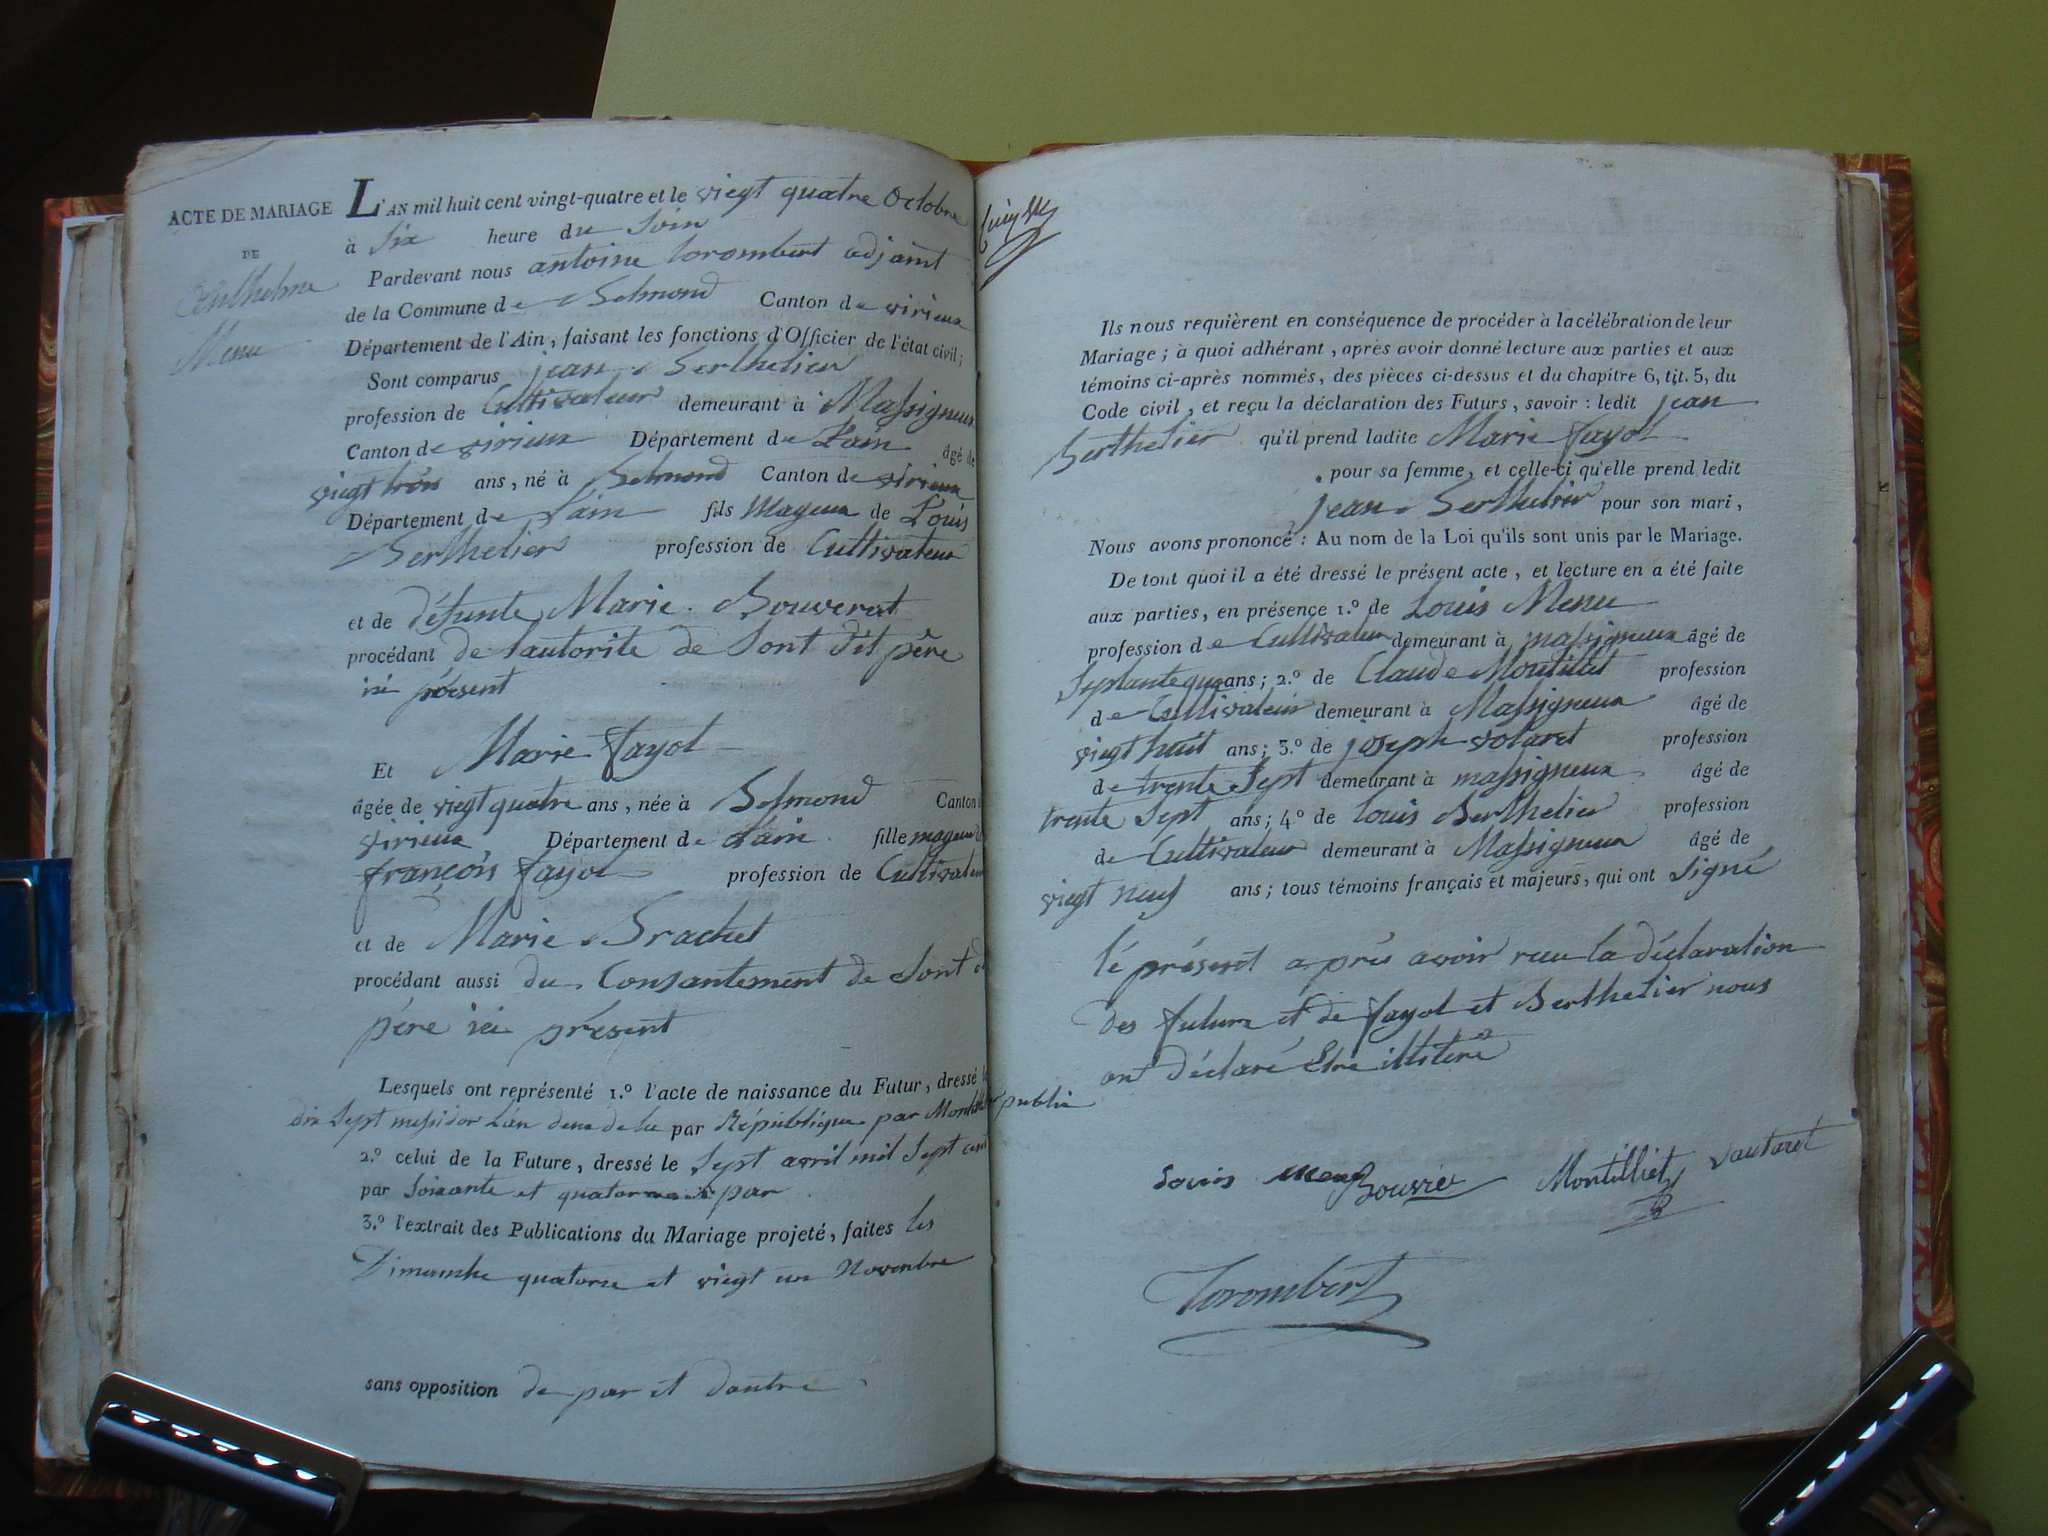 ACTE DE MARIAGE
DE
Anthelme
Menu
L'AN mil huit cent vingt-quatre et le viegt quatre Octobre
à Six heure du Soir
Pardevant nous antoine torombert adjoint
de la Commune de Belmond Canton de virieux
Département de l'Ain, faisant les fonctions d'Officier de l'état civil;
Sont comparus jean Berthelier
profession de Cultivateur demeurant à Massigneux
Canton de virieux Département de Lain âgé de
viegt trois ans, né à Belmond Canton de virieux
Département de Lain fils Mageur de Louis
Berthelier profession de Cultivateur
et de défunte Marie Bouverat
procédant de lautorite de Sont dit père
ici présent
Et Marie fayol
âgée de viegt quatre ans, née à Belmond Canton
virieux Département de Lain fille mageur
françois fayol profession de Cultivateur
et de Marie Brachet
procédant aussi du Consantement de Sont d
père ici présent
Lesquels ont représenté 1.º l'acte de naissance du Futur, dressé le
dix Sept messidor Lan deux de la par République par publi
2.º celui de la Future, dressé le Sept avril mil Sept cent
par Soixante et quatorze par
3.º l'extrait des Publications du Mariage projeté, faites les
Dimanche quatorze et viegt un Novembre
sans opposition de par et dautre
Ils nous requièrent en conséquence de procéder à la célébration de leur
Mariage; à quoi adhérant, après avoir donné lecture aux parties et aux
témoins ci-après nommés, des pièces ci-dessus et du chapitre 6, tit. 5, du
Code civil, et reçu la déclaration des Futurs, savoir: ledit jean
Berthelier qu'il prend ladite Marie fayol
pour sa femme, et celle-ci qu'elle prend ledit
jean Berthelier pour son mari,
Nous avons prononcé: Au nom de la Loi qu'ils sont unis par le Mariage.
De tout quoi il a été dressé le présent acte, et lecture en a été faite
aux parties, en présence 1.º de Louis Menu
profession de Cultivateur demeurant à massigneux âgé de
Septante ans; 2.º de Claude Montillet profession
de Cultivateur demeurant à Massigneux âgé de
viegt huit ans; 3.º de joseph votaret profession
de trente Sept demeurant à massigneux âgé de
trente Sept ans; 4.º de louis Berthelier profession
de Cultivateur demeurant à Massigneux âgé de
viegt neuf ans; tous témoins français et majeurs, qui ont Signé
lé présent après avoir reeu la déclaration
des futurs et de fayol et Berthelier nous
ont déclaré Etre illiteré
Louis Menu Bouvrée Montilliet vautaret
Torombert